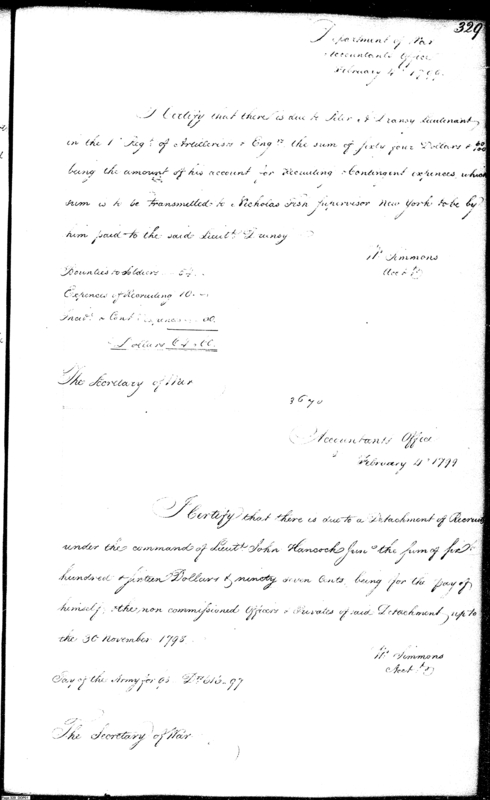 329
Department of War
Accountants Office
February 4th 1799
I Certify that there is due to Peter A Dransy lieutenant
in the 1st Regt of Artillerists & Engrs the sum of sixty four Dollars & 60/100
being the amount of his account for Recruiting & Contingent expences, which
sum is to be transmitted to Nicholas Fish Supervisor New York to be by
him paid to the said Lieutt Dransy
Wm Simmons
Acctt
Bounties to Soldiers
Expences of Recruiting 10
Dollars 64.60
The Secretary of War
3670
Accountants Office
February 4th 1799
I Certify that there is due to a Detachment of Recruits
under the command of Lieutt John Hancock Junr the sum of six
hundred & sixteen Dollars & ninety seven Cents, being for the pay of
himself, & the non commissioned Officers & Privates of said Detachment, up to
the 30 November 1798
Wm Simmons
Acctt
Pay of the Army for 98 Drs 616..97
The Secretary of War